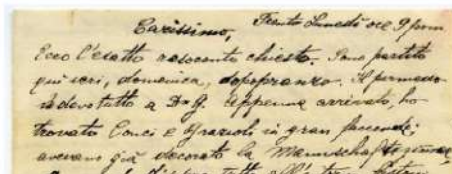 Carissimo, Trento Lunedì ore 9 pom
Ecco l'esatto resoconto chiesto. Sono partito
qui ieri, domenica, dopopranzo. Il permesso
devo tutto a Don G. Appena arrivato, ho
trovato Conci e Grazioli in gran faccende;
avevano già decorato la Mannschaftszimmer,
tutto